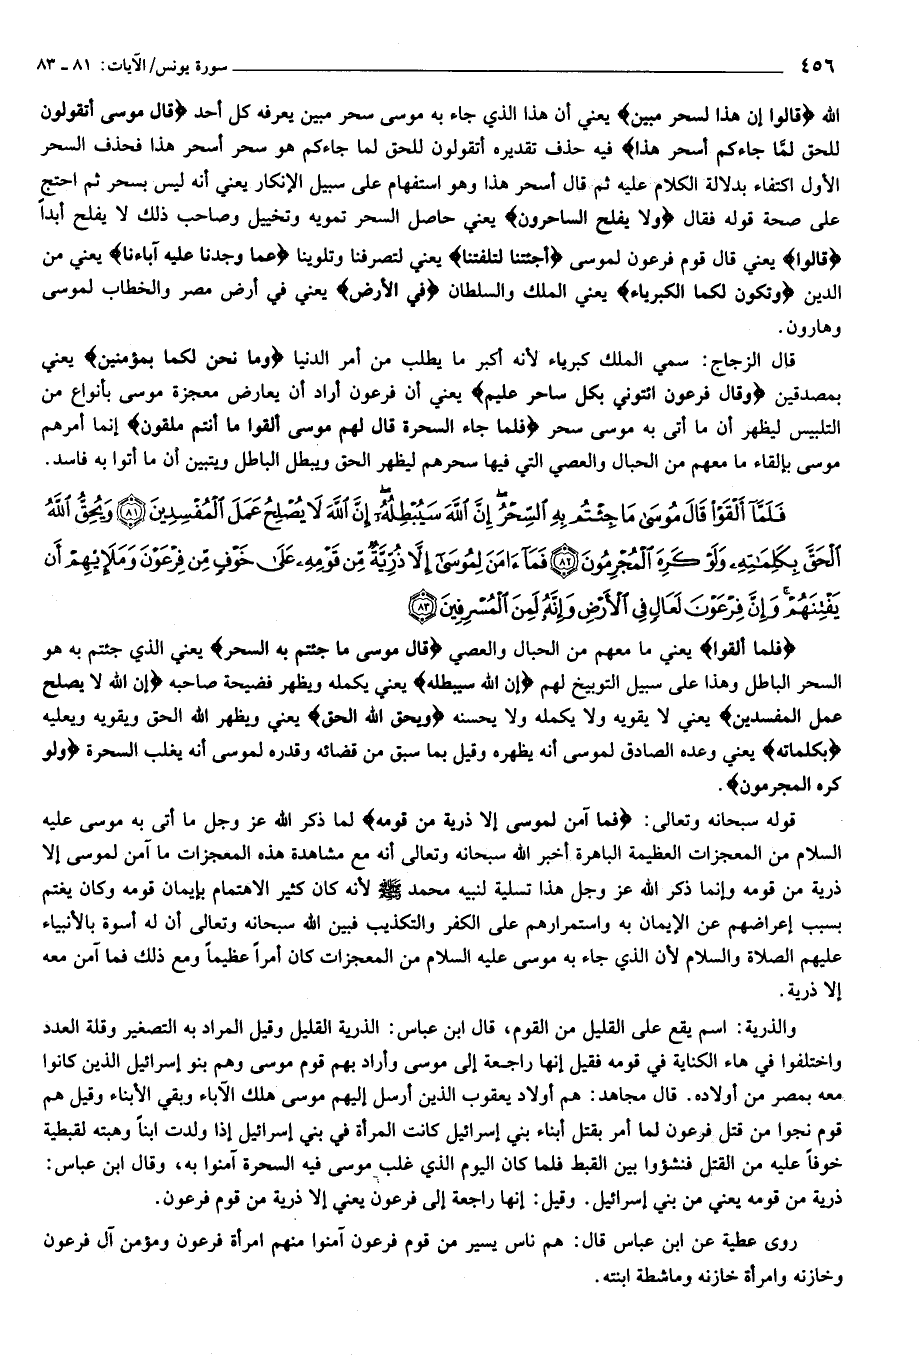 ٤٥٦ سورة يونس/ الآيات: ٨١ ـ ٨٣
الله ﴿قالوا إن هذا لسحر مبين﴾ يعني أن هذا الذي جاء به موسى سحر مبين يعرفه كل أحد ﴿قال موسى أتقولون
للحق لمّا جاءكم أسحر هذا﴾ فيه حذف تقديره أتقولون للحق لما جاءكم هو سحر أسحر هذا فحذف السحر
الأول اكتفاء بدلالة الكلام عليه ثم قال أسحر هذا وهو استفهام على سبيل الإنكار يعني أنه ليس بسحر ثم احتج
على صحة قوله فقال ﴿ولا يفلح الساحرون﴾ يعني حاصل السحر تمويه وتخييل وصاحب ذلك لا يفلح أبداً
﴿قالوا﴾ يعني قال قوم فرعون لموسى ﴿أجئتنا لتلفتنا﴾ يعني لتصرفنا وتلوينا ﴿عما وجدنا عليه آباءنا﴾ يعني من
الدين ﴿وتكون لكما الكبرياء﴾ يعني الملك والسلطان ﴿في الأرض﴾ يعني في أرض مصر والخطاب لموسى
وهارون.
قال الزجاج: سمي الملك كبرياء لأنه أكبر ما يطلب من أمر الدنيا ﴿وما نحن لكما بمؤمنين﴾ يعني
بمصدقين ﴿وقال فرعون ائتوني بكل ساحر عليم﴾ يعني أن فرعون أراد أن يعارض معجزة موسى بأنواع من
التلبيس ليظهر أن ما أتى به موسى سحر ﴿فلما جاء السحرة قال لهم موسى ألقوا ما أنتم ملقون﴾ إنما أمرهم
موسى بإلقاء ما معهم من الحبال والعصي التي فيها سحرهم ليظهر الحق ويبطل الباطل ويتبين أن ما أتوا به فاسد.
فَلَمَّآ أَلْقَوْا۟ قَالَ مُوسَىٰ مَا جِئْتُم بِهِ ٱلسِّحْرُ ۖ إِنَّ ٱللَّهَ سَيُبْطِلُهُۥٓ ۖ إِنَّ ٱللَّهَ لَا يُصْلِحُ عَمَلَ ٱلْمُفْسِدِينَ ﴿٨١﴾ وَيُحِقُّ ٱللَّهُ
ٱلْحَقَّ بِكَلِمَٰتِهِۦ وَلَوْ كَرِهَ ٱلْمُجْرِمُونَ ﴿٨٢﴾ فَمَآ ءَامَنَ لِمُوسَىٰٓ إِلَّا ذُرِّيَّةٌ مِّن قَوْمِهِۦ عَلَىٰ خَوْفٍ مِّن فِرْعَوْنَ وَمَلَإِي۟هِمْ أَن
يَفْتِنَهُمْ ۚ وَإِنَّ فِرْعَوْنَ لَعَالٍ فِى ٱلْأَرْضِ وَإِنَّهُۥ لَمِنَ ٱلْمُسْرِفِينَ ﴿٨٣﴾
﴿فلما ألقوا﴾ يعني ما معهم من الحبال والعصي ﴿قال موسى ما جئتم به السحر﴾ يعني الذي جئتم به هو
السحر الباطل وهذا على سبيل التوبيخ لهم ﴿إن الله سيبطله﴾ يعني يكمله ويظهر فضيحة صاحبه ﴿إن الله لا يصلح
عمل المفسدين﴾ يعني لا يقويه ولا يكمله ولا يحسنه ﴿ويحق الله الحق﴾ يعني ويظهر الله الحق ويقويه ويعليه
﴿بكلماته﴾ يعني وعده الصادق لموسى أنه يظهره وقيل بما سبق من قضائه وقدره لموسى أنه يغلب السحرة ﴿ولو
كره المجرمون﴾.
قوله سبحانه وتعالى: ﴿فما آمن لموسى إلا ذرية من قومه﴾ لما ذكر الله عز وجل ما أتى به موسى عليه
السلام من المعجزات العظيمة الباهرة أخبر الله سبحانه وتعالى أنه مع مشاهدة هذه المعجزات ما آمن لموسى إلا
ذرية من قومه وإنما ذكر الله عز وجل هذا تسلية لنبيه محمد ﷺ لأنه كان كثير الاهتمام بإيمان قومه وكان يغتم
بسبب إعراضهم عن الإيمان به واستمرارهم على الكفر والتكذيب فبين الله سبحانه وتعالى أن له أسوة بالأنبياء
عليهم الصلاة والسلام لأن الذي جاء به موسى عليه السلام من المعجزات كان أمراً عظيماً ومع ذلك فما آمن معه
إلا ذرية.
والذرية: اسم يقع على القليل من القوم، قال ابن عباس: الذرية القليل وقيل المراد به التصغير وقلة العدد
واختلفوا في هاء الكناية في قومه فقيل إنها راجعة إلى موسى وأراد بهم قوم موسى وهم بنو إسرائيل الذين كانوا
معه بمصر من أولاده. قال مجاهد: هم أولاد يعقوب الذين أرسل إليهم موسى هلك الآباء وبقي الأبناء وقيل هم
قوم نجوا من قتل فرعون لما أمر بقتل أبناء بني إسرائيل كانت المرأة في بني إسرائيل إذا ولدت ابناً وهبته لقبطية
خوفاً عليه من القتل فنشؤوا بين القبط فلما كان اليوم الذي غلب موسى فيه السحرة آمنوا به، وقال ابن عباس:
ذرية من قومه يعني من بني إسرائيل. وقيل: إنها راجعة إلى فرعون يعني إلا ذرية من قوم فرعون.
روى عطية عن ابن عباس قال: هم ناس يسير من قوم فرعون آمنوا منهم امرأة فرعون ومؤمن آل فرعون
وخازنه وامرأة خازنه وماشطة ابنته.